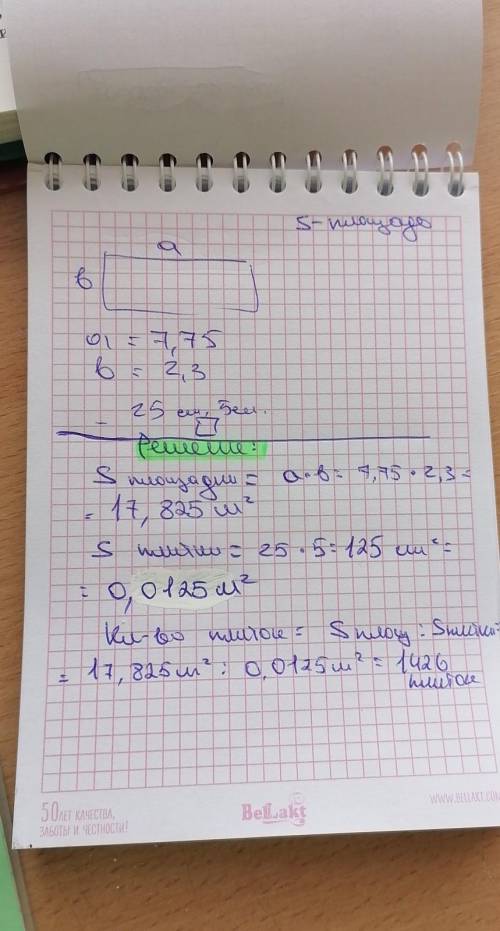 S-площадь
a
в
a = 7,75
в = 2,3
- 25 см, 5см.
Решение:
S площадки = a·в = 7,75·2,3=
= 17,825 м²
S плитки = 25·5=125 см²=
= 0,0125 м²
Кл-во плиток = Sплощ : Sплитки=
= 17,825м² : 0,0125м² = 1426
плиток
50 ЛЕТ КАЧЕСТВА,
ЗАБОТЫ И ЧЕСТНОСТИ!
BelLakt
WWW.BELLAKT.COM